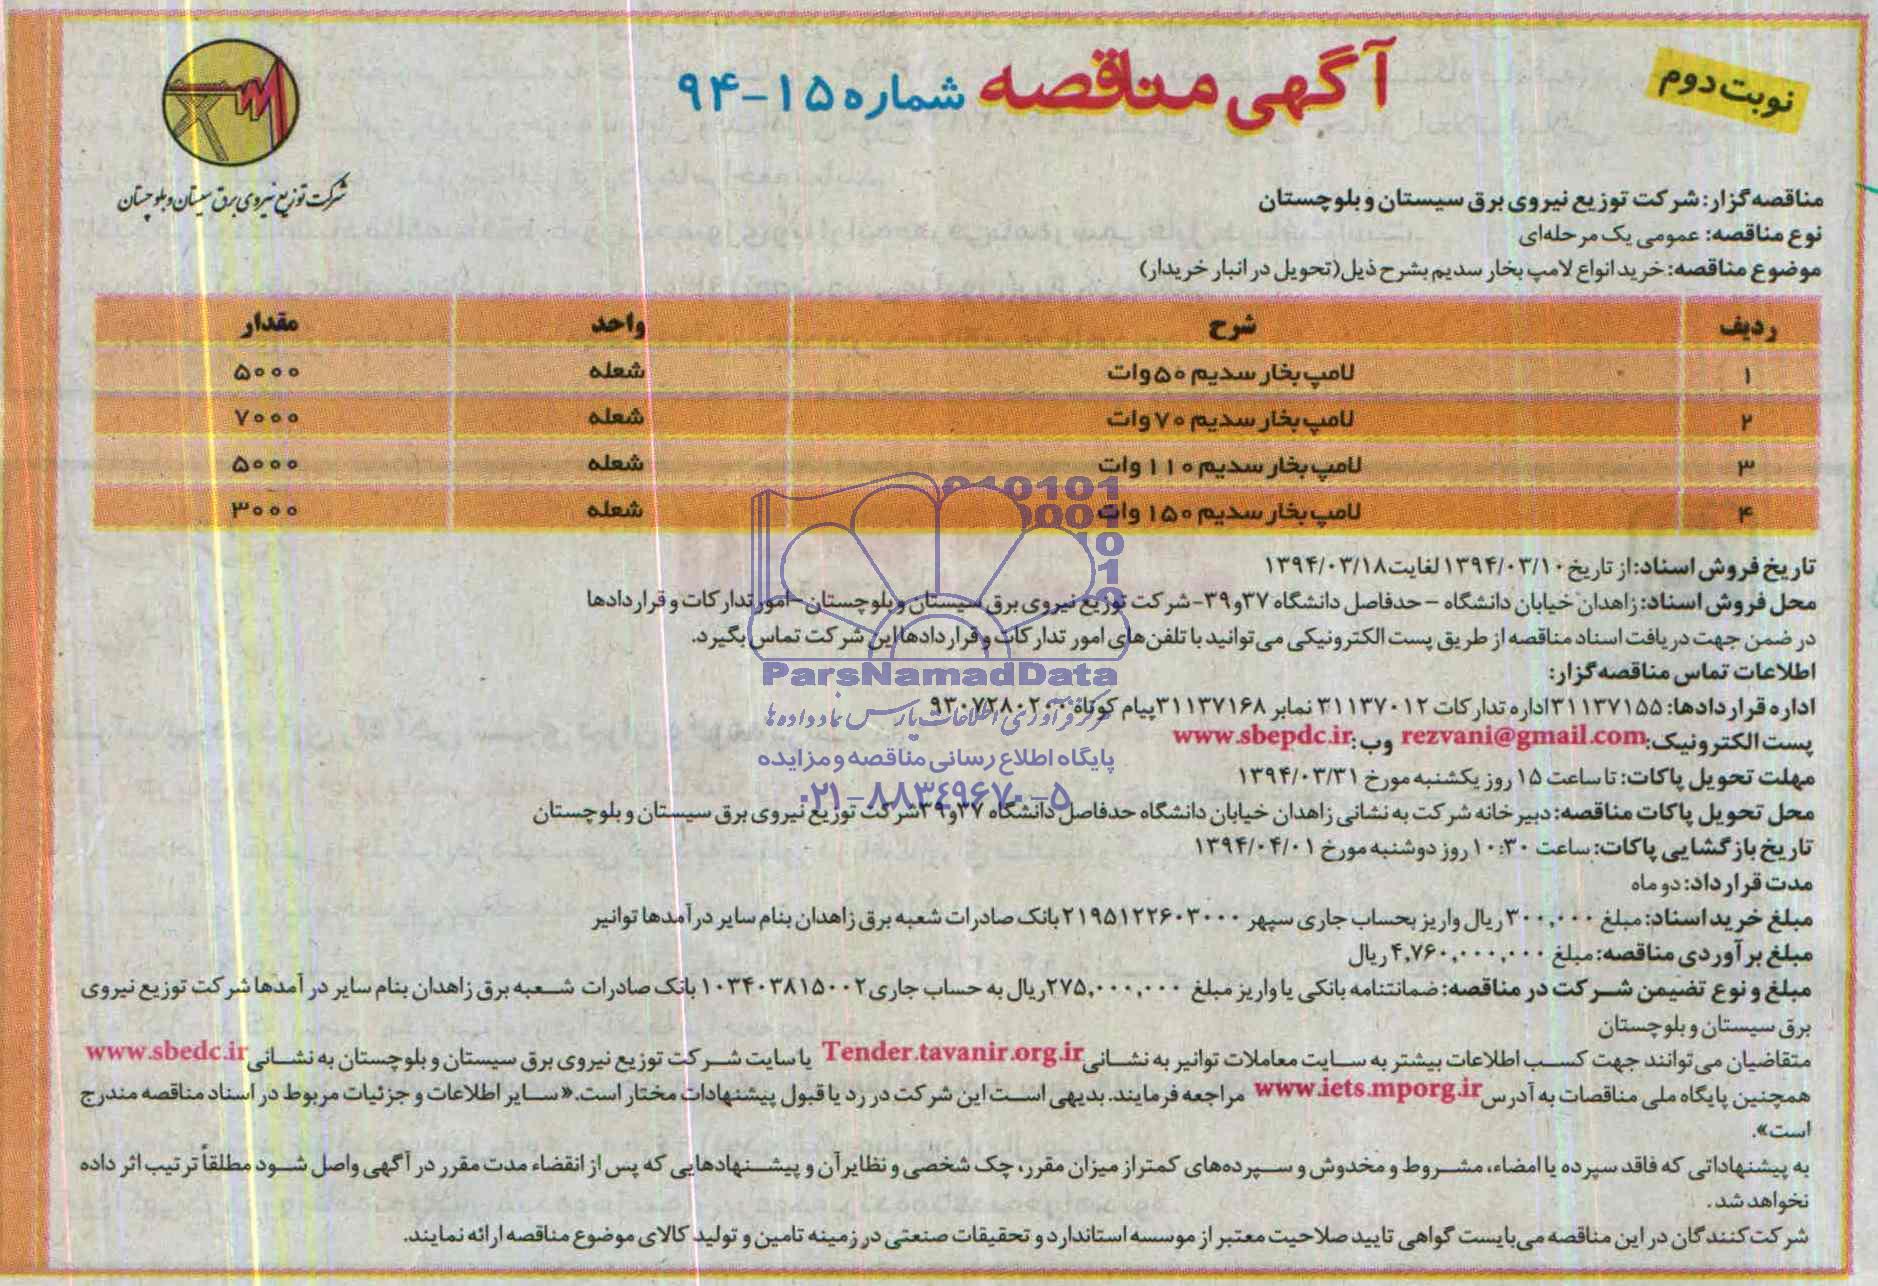 نوبت دوم
آگهی مناقصه شماره ۱۵-۹۴
شرکت توزیع نیروی برق سیستان و بلوچستان
مناقصه‌گزار: شرکت توزیع نیروی برق سیستان و بلوچستان
نوع مناقصه: عمومی یک مرحله‌ای
موضوع مناقصه: خرید انواع لامپ بخار سدیم بشرح ذیل (تحویل در انبار خریدار)
ردیف شرح واحد مقدار
۱ لامپ بخار سدیم ۵۰ وات شعله ۵۰۰۰
۲ لامپ بخار سدیم ۷۰ وات شعله ۷۰۰۰
۳ لامپ بخار سدیم ۱۱۰ وات شعله ۵۰۰۰
۴ لامپ بخار سدیم ۱۵۰ وات شعله ۳۰۰۰
تاریخ فروش اسناد: از تاریخ ۱۳۹۴/۰۳/۱۰ لغایت ۱۳۹۴/۰۳/۱۸
محل فروش اسناد: زاهدان خیابان دانشگاه – حدفاصل دانشگاه ۳۷و۳۹-شرکت توزیع نیروی برق سیستان و بلوچستان-امور تدارکات و قراردادها
در ضمن جهت دریافت اسناد مناقصه از طریق پست الکترونیکی می‌توانید با تلفن‌های امور تدارکات و قراردادها این شرکت تماس بگیرد.
اطلاعات تماس مناقصه‌گزار:
اداره قراردادها: ۳۱۱۳۷۱۵۵ اداره تدارکات ۳۱۱۳۷۰۱۲ نمابر ۳۱۱۳۷۱۶۸ پیام کوتاه ۹۳۰۷۲۸۰۲۰۰
پست الکترونیک: rezvani@gmail.com وب: www.sbepdc.ir
مهلت تحویل پاکات: تا ساعت ۱۵ روز یکشنبه مورخ ۱۳۹۴/۰۳/۳۱
محل تحویل پاکات مناقصه: دبیرخانه شرکت به نشانی زاهدان خیابان دانشگاه حدفاصل دانشگاه ۳۷و۳۹ شرکت توزیع نیروی برق سیستان و بلوچستان
تاریخ بازگشایی پاکات: ساعت ۱۰:۳۰ روز دوشنبه مورخ ۱۳۹۴/۰۴/۰۱
مدت قرارداد: دو ماه
مبلغ خرید اسناد: مبلغ ۳۰۰,۰۰۰ ریال واریز بحساب جاری سپهر ۲۱۹۵۱۲۲۶۰۳۰۰۰ بانک صادرات شعبه برق زاهدان بنام سایر درآمدها توانیر
مبلغ برآوردی مناقصه: مبلغ ۴,۷۶۰,۰۰۰,۰۰۰ ریال
مبلغ و نوع تضیمن شرکت در مناقصه: ضمانتنامه بانکی یا واریز مبلغ ۲۷۵,۰۰۰,۰۰۰ ریال به حساب جاری ۱۰۳۴۰۳۸۱۵۰۰۲ بانک صادرات شعبه برق زاهدان بنام سایر درآمدها شرکت توزیع نیروی
برق سیستان و بلوچستان
متقاضیان می‌توانند جهت کسب اطلاعات بیشتر به سایت معاملات توانیر به نشانی Tender.tavanir.org.ir یا سایت شرکت توزیع نیروی برق سیستان و بلوچستان به نشانی www.sbedc.ir
همچنین پایگاه ملی مناقصات به آدرس www.iets.mporg.ir مراجعه فرمایند. بدیهی است این شرکت در رد یا قبول پیشنهادات مختار است.«سایر اطلاعات و جزئیات مربوط در اسناد مناقصه مندرج
است».
به پیشنهاداتی که فاقد سپرده یا امضاء، مشروط و مخدوش و سپرده‌های کمتر از میزان مقرر، چک شخصی و نظایر آن و پیشنهادهایی که پس از انقضاء مدت مقرر در آگهی واصل شود مطلقاً ترتیب اثر داده
نخواهد شد.
شرکت‌کنندگان در این مناقصه می‌بایست گواهی تایید صلاحیت معتبر از موسسه استاندارد و تحقیقات صنعتی در زمینه تامین و تولید کالای موضوع مناقصه ارائه نمایند.
ParsNamadData
مرکز فرآوری اطلاعات پارس نماد داده‌ها
پایگاه اطلاع رسانی مناقصه و مزایده
۰۲۱-۸۸۳۴۹۶۷۰-۵